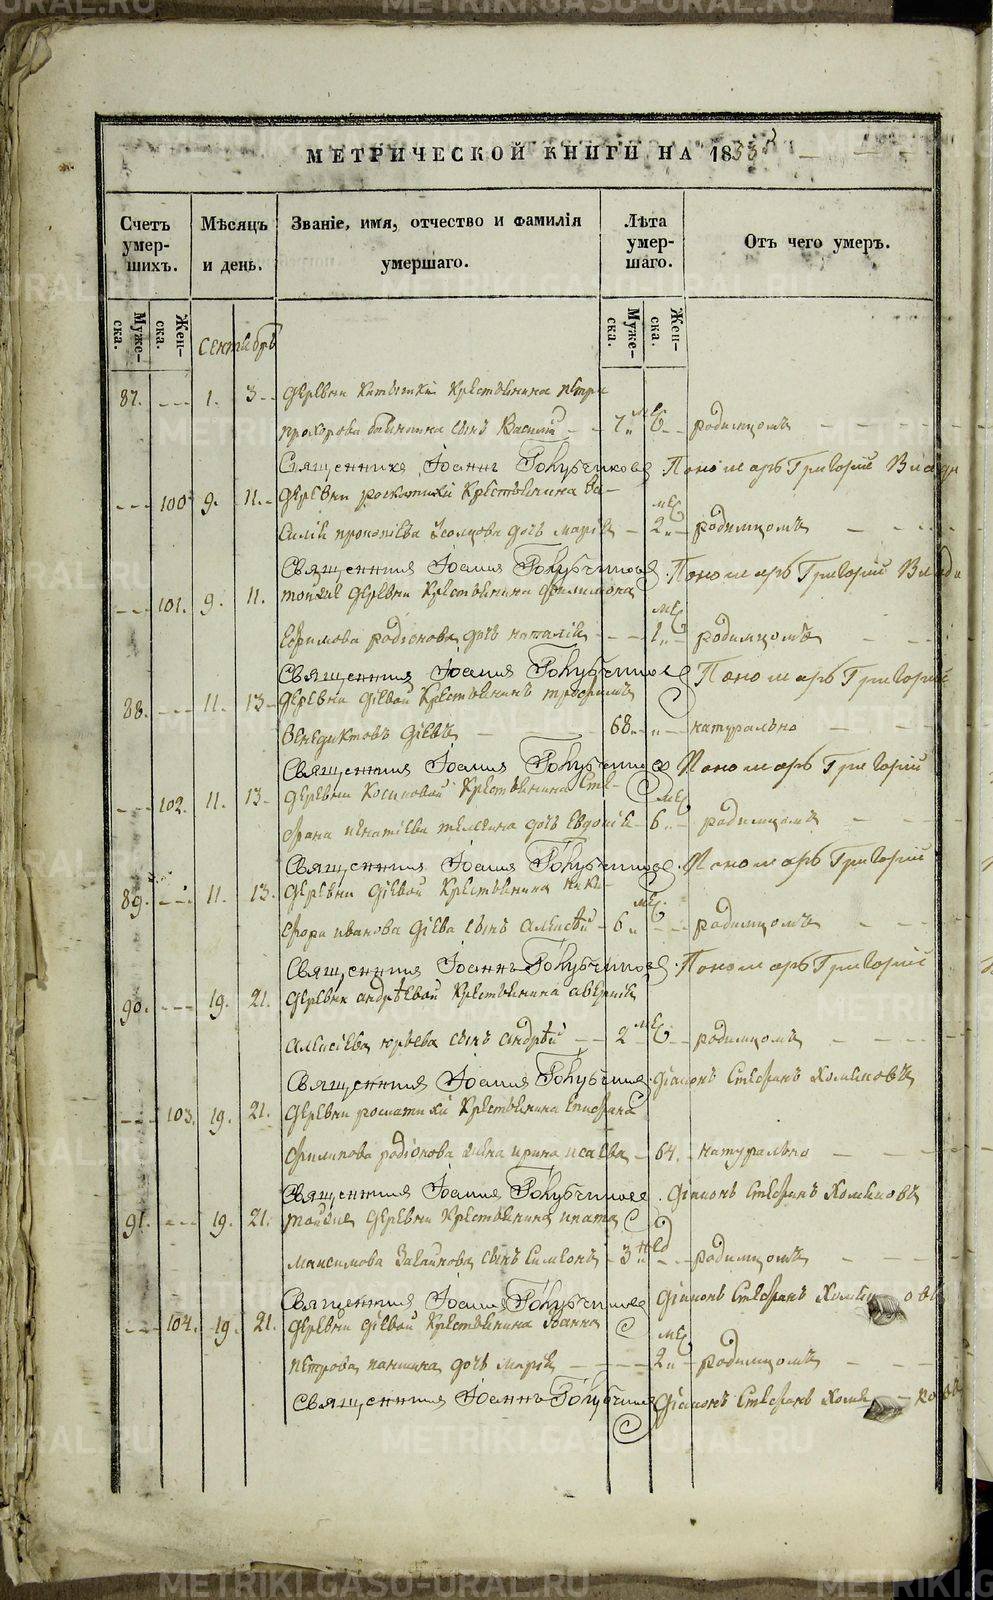 METRIKI.GASO-URAL.RU
МЕТРИЧЕСКОЙ КНИГИ НА 1833
Счетъ умер- шихъ.
Мѣсяцъ и день.
Званіе, имя, отчество и фамилія умершаго.
Лѣта умер- шаго.
Отъ чего умеръ.
Муже- ска.
Жен- ска.
Сентябрь
Муже- ска.
Жен- ска.
87. 1. 3 Деревни крестьянина Петра
Прохорова сынъ Василій 7 родимцомъ
Священникъ Іоаннъ Голубчиковъ Пономарь Григорій
100 9. 11. Деревни крестьянина Ва-
силія Прокопіева дочь Марія 2 мец родимцомъ
Священникъ Іоаннъ Голубчиковъ Пономарь Григорій
101. 9. 11. тойже деревни крестьянина Филимона
Ефимова Родіонова дочь Наталія 1 мец родимцомъ
Священникъ Іоаннъ Голубчиковъ Пономарь Григорій
88. 11. 13 Деревни Діевой крестьянинъ Трофимъ
Венедиктовъ Діевъ 68 натурально
Священникъ Іоаннъ Голубчиковъ Пономарь Григорій
102. 11. 13 Деревни Косиковой крестьянина Сте-
фана Игнатіева дочь Евдокія 6 мец родимцомъ
Священникъ Іоаннъ Голубчиковъ Пономарь Григорій
89. 11. 13. Деревни Діевой крестьянина Ники-
фора Иванова Діева сынъ Алексѣй 6 мец родимцомъ
Священникъ Іоаннъ Голубчиковъ Пономарь Григорій
90. 19. 21. Деревни Андрѣевой крестьянина Аверкія
Алексіева Юрьева сынъ Андрѣй 2 мец родимцомъ
Священникъ Іоаннъ Голубчиковъ Діаконъ Стефанъ Хомяковъ
103. 19. 21. Деревни крестьянина Епифана
Филипова Родіонова жена Ирина Исаева 64. натурально
Священникъ Іоаннъ Голубчиковъ Діаконъ Стефанъ Хомяковъ
91. 19. 21. тойже деревни крестьянина Ипата
Максимова сынъ Симеонъ 3 нед родимцомъ
Священникъ Іоаннъ Голубчиковъ Діаконъ Стефанъ Хомяковъ
104. 19. 21. Деревни Діевой крестьянина Іоанна
Петрова Паншина дочь Марія 2 мец родимцомъ
Священникъ Іоаннъ Голубчиковъ Діаконъ Стефанъ Хомяковъ
METRIKI.GASO-URAL.RU